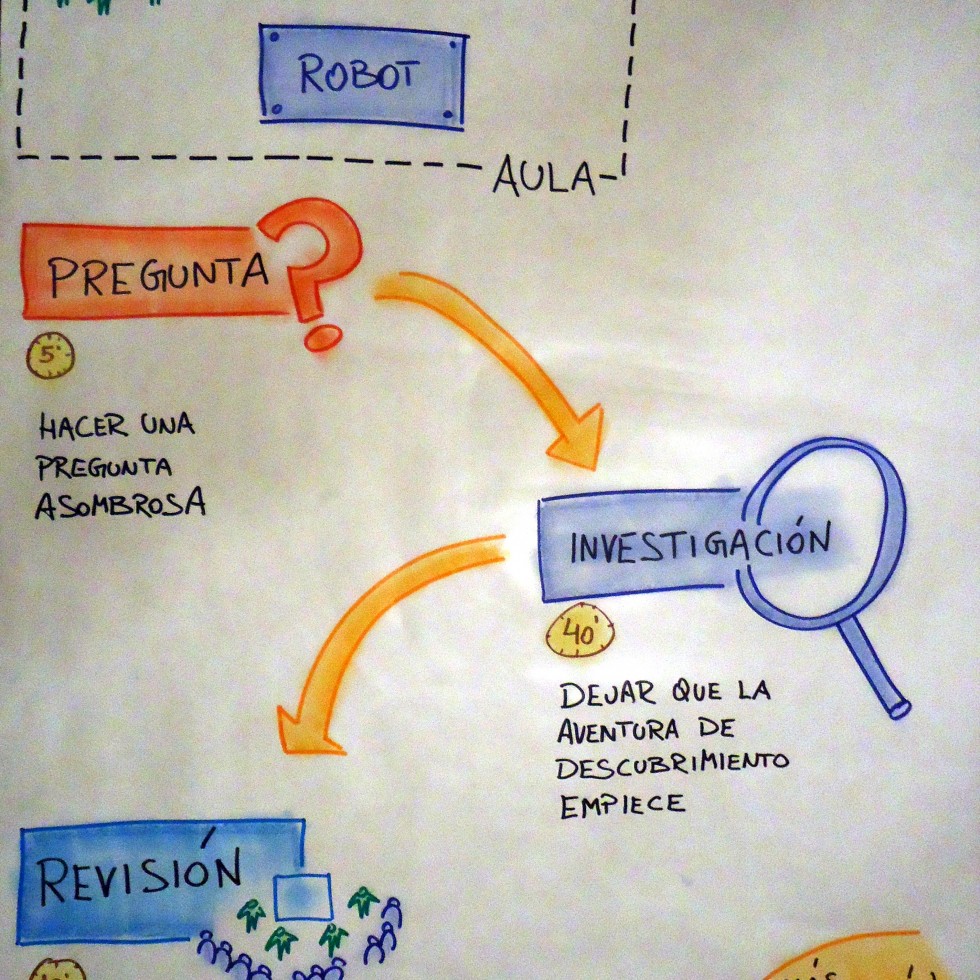 ROBOT
AULA
PREGUNTA?
5'
HACER UNA
PREGUNTA
ASOMBROSA
INVESTIGACIÓN
40'
DEJAR QUE LA
AVENTURA DE
DESCUBRIMIENTO
EMPIECE
REVISIÓN